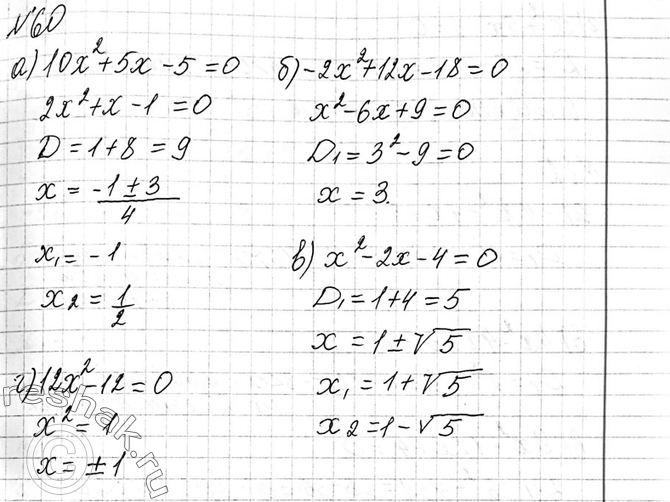 №60
а) 10x²+5x-5=0
2x²+x-1=0
D=1+8=9
x = (-1±3)/4
x₁=-1
x₂=1/2
б) -2x²+12x-18=0
x²-6x+9=0
D₁=3²-9=0
x=3.
в) x²-2x-4=0
D₁=1+4=5
x=1±√5
x₁=1+√5
x₂=1-√5
г) 12x²-12=0
x²=1
x=±1
reshak.ru